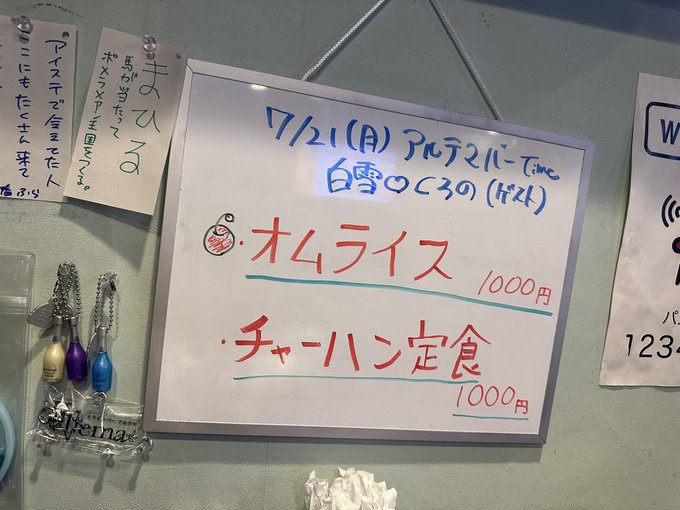 アイステで会えてた人
ここにもたくさん来て
まひる
馬が当たって
ポメラニアン王国をつくる。
7/21(月) アルテマバーTime
白雪♡くろの(ゲスト)
・オムライス
1000円
・チャーハン定食
1000円
W
パ
1234